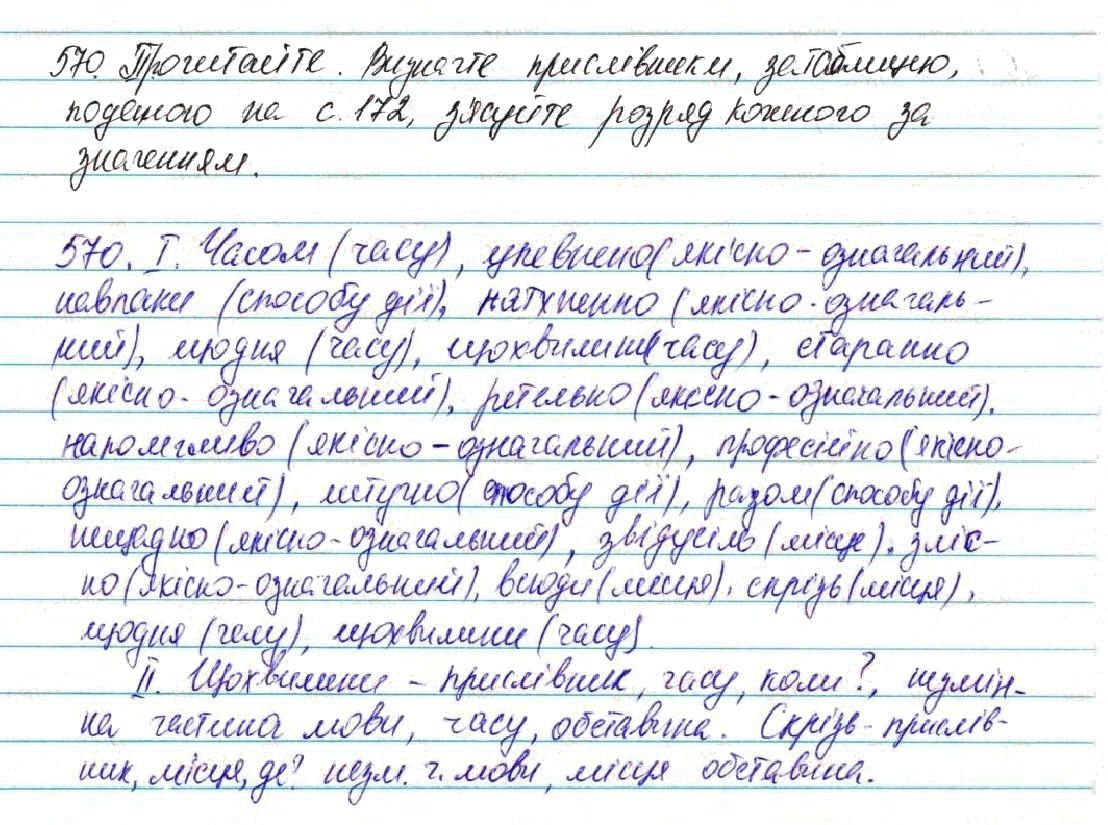 570. Прочитайте. Визначте прислівники, за таблицею,
поданою на с. 172, з'ясуйте розряд кожного за
значенням.
570. I. Часом (часу), упевнено (якісно-означальний),
навпаки (способу дії), натхненно (якісно-означаль-
ний), щодня (часу), щохвилини (часу), старанно
(якісно-означальний), ретельно (якісно-означальний),
наполегливо (якісно-означальний), професійно (якісно-
означальний), штучно (способу дії), разом (способу дії),
нещадно (якісно-означальний), звідусіль (місце), зліс-
но (якісно-означальний), всюди (місця), скрізь (місця),
щодня (часу), щохвилини (часу)
II. Щохвилини - прислівник, часу, коли?, незмін-
на частина мови, часу, обставина. Скрізь - прислів-
ник, місця, де? незм. ч. мови, місця обставина.